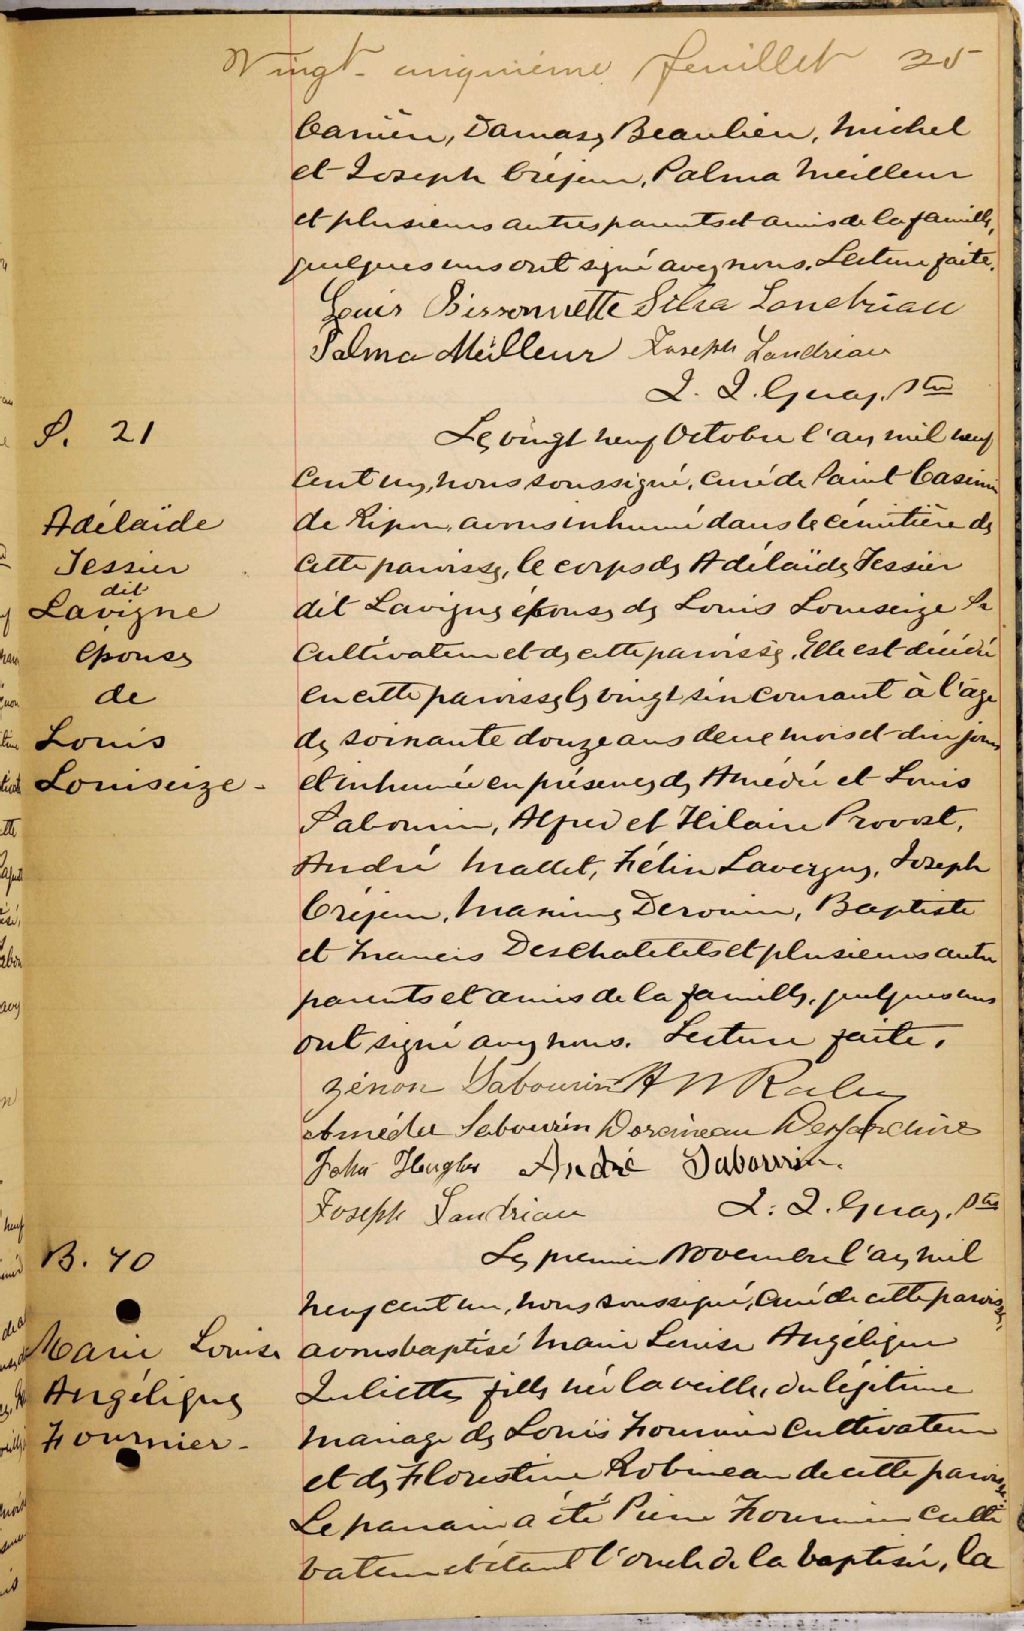 Vingt-cinquième feuillet 25
Carrière, Damase Beaulieu, Michel
et Joseph Créjeur, Palma Meilleur
et plusieurs autres parents et amis de la famille,
quelques uns ont signé avec nous. Lecture faite.
Louis Bissonnette Silva Landriau
Palma Meilleur Joseph Landriau
J. I. Guay, Ptre
S. 21
Le vingt neuf Octobre l'an mil neuf
cent un, nous soussigné, curé de Saint Casimir
Adélaïde
de Ripon, avons inhumé dans le cémitière de
Tessier
cette paroisse, le corps de Adélaïde Tessier
dit
Lavigne
dit Lavigne épouse de Louis Louiseize Sr
épouse
cultivateur et de cette paroisse. Elle est décédé
de
en cette paroisse le vingt six courant à l'âge
Louis
de soixante douze ans deux mois et dix jours
Louiseize -
et inhumée en présence de Amédée et Louis
Sabourin, Alfred et Hilaire Provost,
André Mallet, Félix Lavergne, Joseph
Créjeur, Maxime Derouin, Baptiste
et Francis DesChatelets et plusieurs autres
parents et amis de la famille, quelques uns
ont signé avec nous. Lecture faite.
Zénon Sabourin A W
Amédée Sabourin Dorémeau Desjardins
John Hughes André Sabourin.
Joseph Landriau J. I. Guay, Ptre
B. 70
Le premier Novembre l'an mil
neuf cent un, nous soussigné, curé de cette paroisse,
Marie Louise
avons baptisé Marie Louise Angélique
Angélique
Juliette fille née la veille, du légitime
Fournier -
mariage de Louis Fournier cultivateur
et de Florestine Robineau de cette paroisse.
Le parrain a été Pierre Fournier culti
vateur et étant l'oncle de la baptisée, la